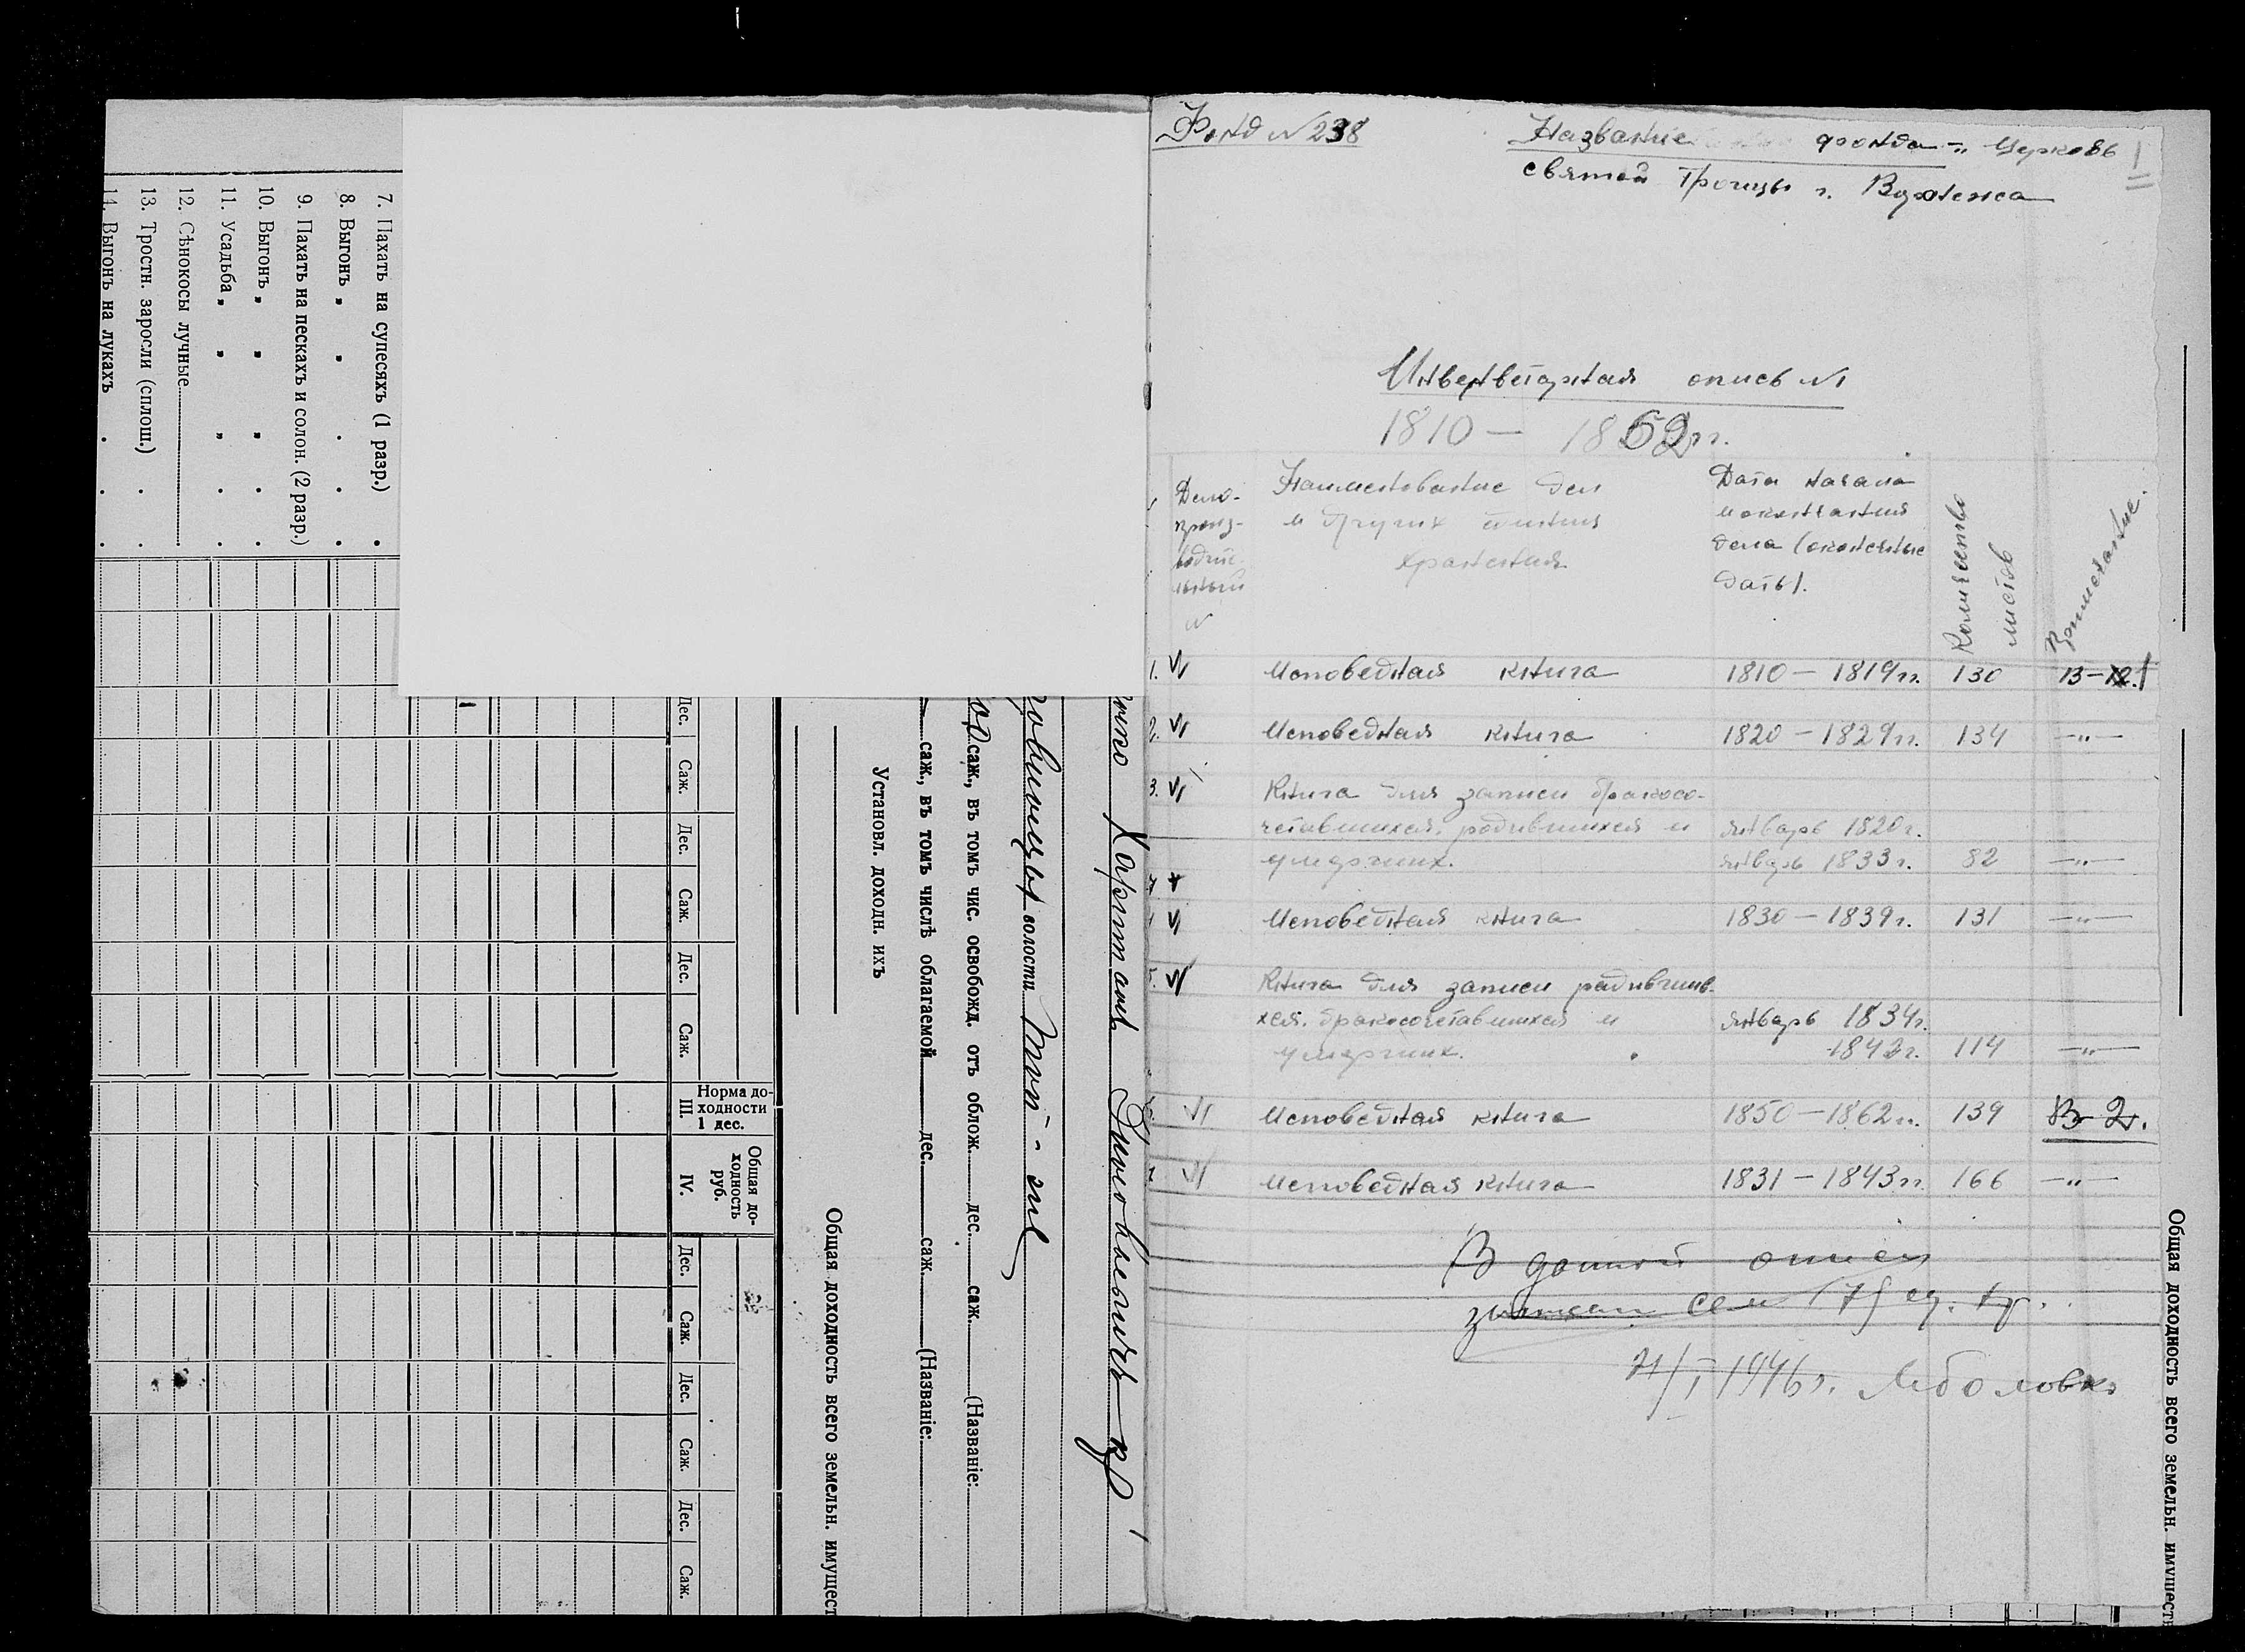 7. Пахать на супесяхъ (1 разр.)
8. Выгонъ „ „
9. Пахать на пескахъ и солон. (2 разр.)
10. Выгонъ „ „ „
11. Усадьба „ „ „
12. Сѣнокосы лучные
13. Тростн. заросли (сплош.)
14. Выгонъ на лукахъ
волости
саж., въ томъ чис. освобожд. отъ облож. дес. саж. (Названіе:
саж., въ томъ числѣ облагаемой дес. саж. (Названіе:
Установл. доходн. ихъ
Общая доходность всего земельн. имущест
Общая доходность руб.
IV.
Норма доходности 1 дес.
III.
Дес. Саж. Дес. Саж. Дес. Саж.
Дес. Саж. Дес. Саж. Дес. Саж.
Фонд №238
Название фонда – „ Церковь
святой Троицы г.
1
Инвентарная опись №1
1810 — 1862 гг.
Делопроизводительный №
Наименование дел
и других единиц
хранения
Дата начала
и окончания
дела (оконечные
даты).
Количество
листов
Примечание.
1. Исповедная книга 1810 – 1819 гг. 130
2. Исповедная книга 1820 – 1829 гг. 134 —„—
3. Книга для записи бракосо-
четавшихся, родившихся и январь 1820 г.
умерших. январь 1833 г. 82 —„—
Исповедная книга 1830 – 1839 г. 131 —„—
5. Книга для записи родивших-
хся, бракосочетавшихся и январь 1834 г.
умерших. 1842 г. 114 —„—
Исповедная книга 1850 – 1862 гг. 139
Исповедная книга 1831 – 1843 гг. 166 —„—
В данной описи
семь (7) ед. хр.
1946 г.
Общая доходность всего земельн. имуществ